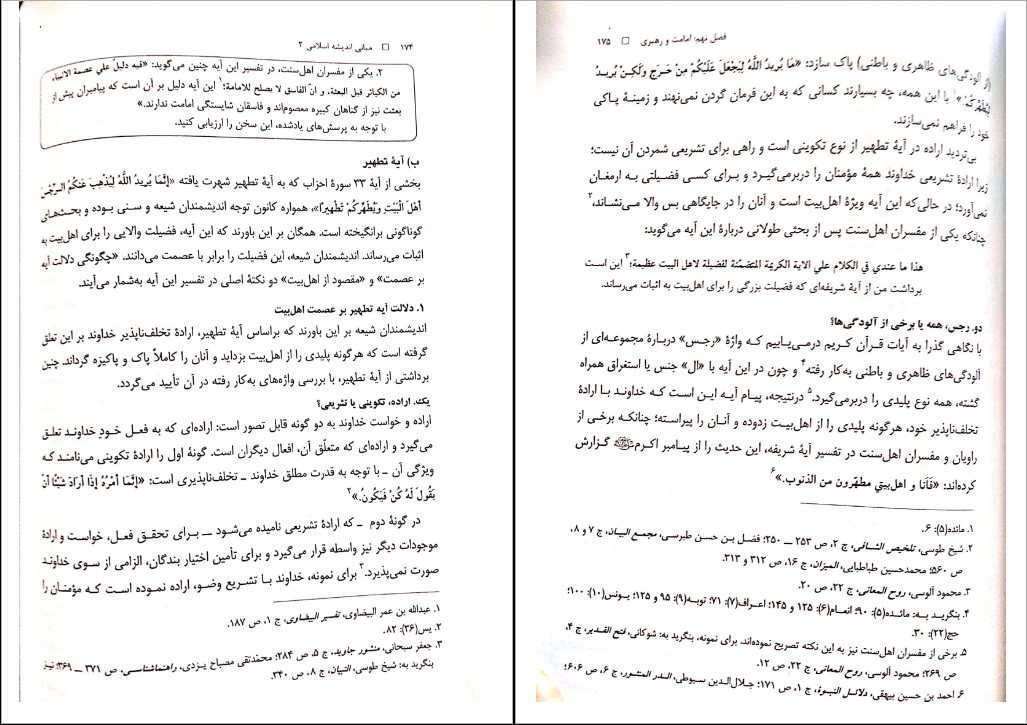 ۱۷۴ □ مبانی اندیشه اسلامی ۲
۲. یکی از مفسران اهل‌سنت، در تفسیر این آیه چنین می‌گوید: «فیه دلیل علي عصمة الانبیاء
من الکبائر قبل البعثة، و انّ الفاسق لا یصلح للامامة؛۱ این آیه دلیل بر آن است که پیامبران پیش از
بعثت نیز از گناهان کبیره معصوم‌اند و فاسقان شایستگی امامت ندارند.»
با توجه به پرسش‌های یادشده، این سخن را ارزیابی کنید.
ب) آیهٔ تطهیر
بخشی از آیهٔ ۳۳ سورهٔ احزاب که به آیهٔ تطهیر شهرت یافته «إِنَّمَا يُرِيدُ اللَّهُ لِيُذْهِبَ عَنكُمُ الرِّجْسَ
أَهْلَ الْبَيْتِ وَيُطَهِّرَكُمْ تَطْهِيرًا»، همواره کانون توجه اندیشمندان شیعه و سنی بوده و بحث‌های
گوناگونی برانگیخته است. همگان بر این باورند که این آیه، فضیلت والایی را برای اهل‌بیت به
اثبات می‌رساند. اندیشمندان شیعه، این فضیلت را برابر با عصمت می‌دانند. «چگونگی دلالت آیه
بر عصمت» و «مقصود از اهل‌بیت» دو نکتهٔ اصلی در تفسیر این آیه به‌شمار می‌آیند.
۱. دلالت آیه تطهیر بر عصمت اهل‌بیت
اندیشمندان شیعه بر این باورند که براساس آیهٔ تطهیر، ارادهٔ تخلف‌ناپذیر خداوند بر این تعلق
گرفته است که هرگونه پلیدی را از اهل‌بیت بزداید و آنان را کاملاً پاک و پاکیزه گرداند. چنین
برداشتی از آیهٔ تطهیر، با بررسی واژه‌های به‌کار رفته در آن تأیید می‌گردد.
یک. اراده، تکوینی یا تشریعی؟
اراده و خواست خداوند به دو گونه قابل تصور است: اراده‌ای که به فعل خودِ خداوند تعلق
می‌گیرد و اراده‌ای که متعلّق آن، افعال دیگران است. گونهٔ اول را ارادهٔ تکوینی می‌نامند که
ویژگی آن ـ با توجه به قدرت مطلق خداوند ـ تخلف‌ناپذیری است: «إِنَّمَا أَمْرُهُ إِذَا أَرَادَ شَيْئًا أَنْ
يَقُولَ لَهُ كُنْ فَيَكُونُ.»۲
در گونهٔ دوم ـ که ارادهٔ تشریعی نامیده می‌شود ـ برای تحقق فعل، خواست و ارادهٔ
موجودات دیگر نیز واسطه قرار می‌گیرد و برای تأمین اختیار بندگان، الزامی از سوی خداوند
صورت نمی‌پذیرد.۳ برای نمونه، خداوند با تشریع وضو، اراده نموده است که مؤمنان را
۱. عبدالله بن عمر البیضاوی، تفسیر البیضاوی، ج ۱، ص ۱۸۷.
۲. یس(۳۶): ۸۲.
۳. جعفر سبحانی، منشور جاوید، ج ۵، ص ۲۸۴؛ محمدتقی مصباح یزدی، راهنماشناسی، ص ۳۷۱ ـ ۳۶۹؛ نیز
بنگرید به: شیخ طوسی، التبیان، ج ۸، ص ۳۴۰.
فصل نهم: امامت و رهبری □ ۱۷۵
(از آلودگی‌های ظاهری و باطنی) پاک سازد: «مَا يُرِيدُ اللَّهُ لِيَجْعَلَ عَلَيْكُم مِنْ حَرَجٍ وَلَكِنْ يُرِيدُ
لِيُطَهِّرَكُمْ.»۱ با این همه، چه بسیارند کسانی که به این فرمان گردن نمی‌نهند و زمینهٔ پاکی
خود را فراهم نمی‌سازند.
بی‌تردید اراده در آیهٔ تطهیر از نوع تکوینی است و راهی برای تشریعی شمردن آن نیست؛
زیرا ارادهٔ تشریعی خداوند همهٔ مؤمنان را دربرمی‌گیرد و برای کسی فضیلتی به ارمغان
نمی‌آورد؛ در حالی‌که این آیه ویژهٔ اهل‌بیت است و آنان را در جایگاهی بس والا می‌نشاند،۲
چنانکه یکی از مفسران اهل‌سنت پس از بحثی طولانی دربارهٔ این آیه می‌گوید:
هذا ما عندي في الکلام علي الایة الکریمة المتضمّنة لفضیلة لاهل البیت عظیمة؛۳ این است
برداشت من از آیهٔ شریفه‌ای که فضیلت بزرگی را برای اهل‌بیت به اثبات می‌رساند.
دو. رجس، همه یا برخی از آلودگی‌ها؟
با نگاهی گذرا به آیات قرآن کریم درمی‌یابیم که واژهٔ «رجس» دربارهٔ مجموعه‌ای از
آلودگی‌های ظاهری و باطنی به‌کار رفته۴ و چون در این آیه با «ال» جنس یا استغراق همراه
گشته، همه نوع پلیدی را دربرمی‌گیرد.۵ درنتیجه، پیام آیه این است که خداوند با ارادهٔ
تخلف‌ناپذیر خود، هرگونه پلیدی را از اهل‌بیت زدوده و آنان را پیراسته؛ چنانکه برخی از
راویان و مفسران اهل‌سنت در تفسیر آیهٔ شریفه، این حدیث را از پیامبر اکرم ﷺ گزارش
کرده‌اند: «فَأنا و اهل‌بیتي مطهّرون من الذنوب.»۶
۱. مائده(۵): ۶.
۲. شیخ طوسی، تلخیص الشافی، ج ۲، ص ۲۵۳ ـ ۲۵۰؛ فضل بن حسن طبرسی، مجمع البیان، ج ۷ و ۸،
ص ۵۶۰؛ محمدحسین طباطبایی، المیزان، ج ۱۶، ص ۳۱۲ و ۳۱۳.
۳. محمود آلوسی، روح المعانی، ج ۲۲، ص ۲۰.
۴. بنگرید به: مائده(۵): ۹۰؛ انعام(۶): ۱۲۵ و ۱۴۵؛ اعراف(۷): ۷۱؛ توبه(۹): ۹۵ و ۱۲۵؛ یونس(۱۰): ۱۰۰؛
حج(۲۲): ۳۰.
۵. برخی از مفسران اهل‌سنت نیز به این نکته تصریح نموده‌اند. برای نمونه، بنگرید به: شوکانی، فتح القدیر، ج ۴،
ص ۲۶۹؛ محمود آلوسی، روح المعانی، ج ۲۲، ص ۱۲.
۶. احمد بن حسین بیهقی، دلائل النبوة، ج ۱، ص ۱۷۱؛ جلال‌الدین سیوطی، الدر المنثور، ج ۶، ص ۶۰۶؛